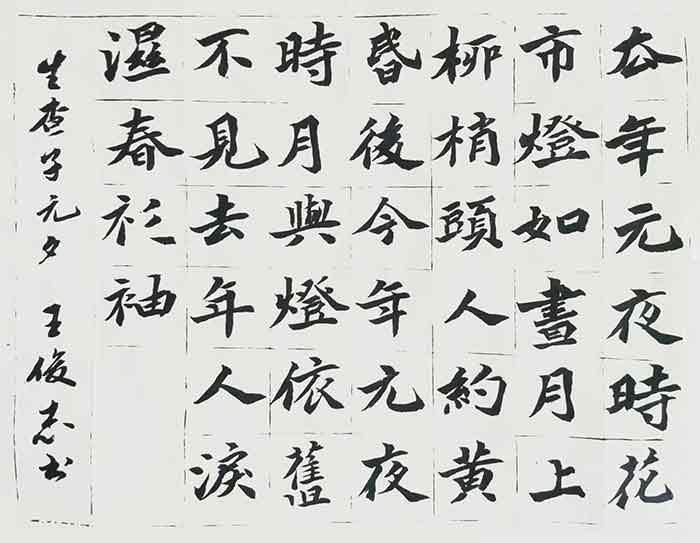 厺年元夜時花
市燈如晝月上
柳梢頭人約黃
昬後今年元夜
時月與燈依舊
不見去年人淚
濕春衫袖
生查子元夕 王俊志书